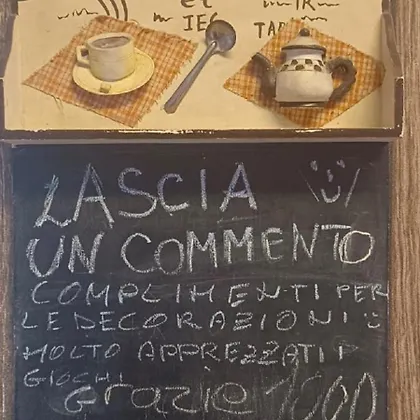 et
LASCIA
UN COMMENTO
COMPLIMENTI PER
LE DECORAZIONI
MOLTO APPREZZATI I
GIOCHI
Grazie 1000